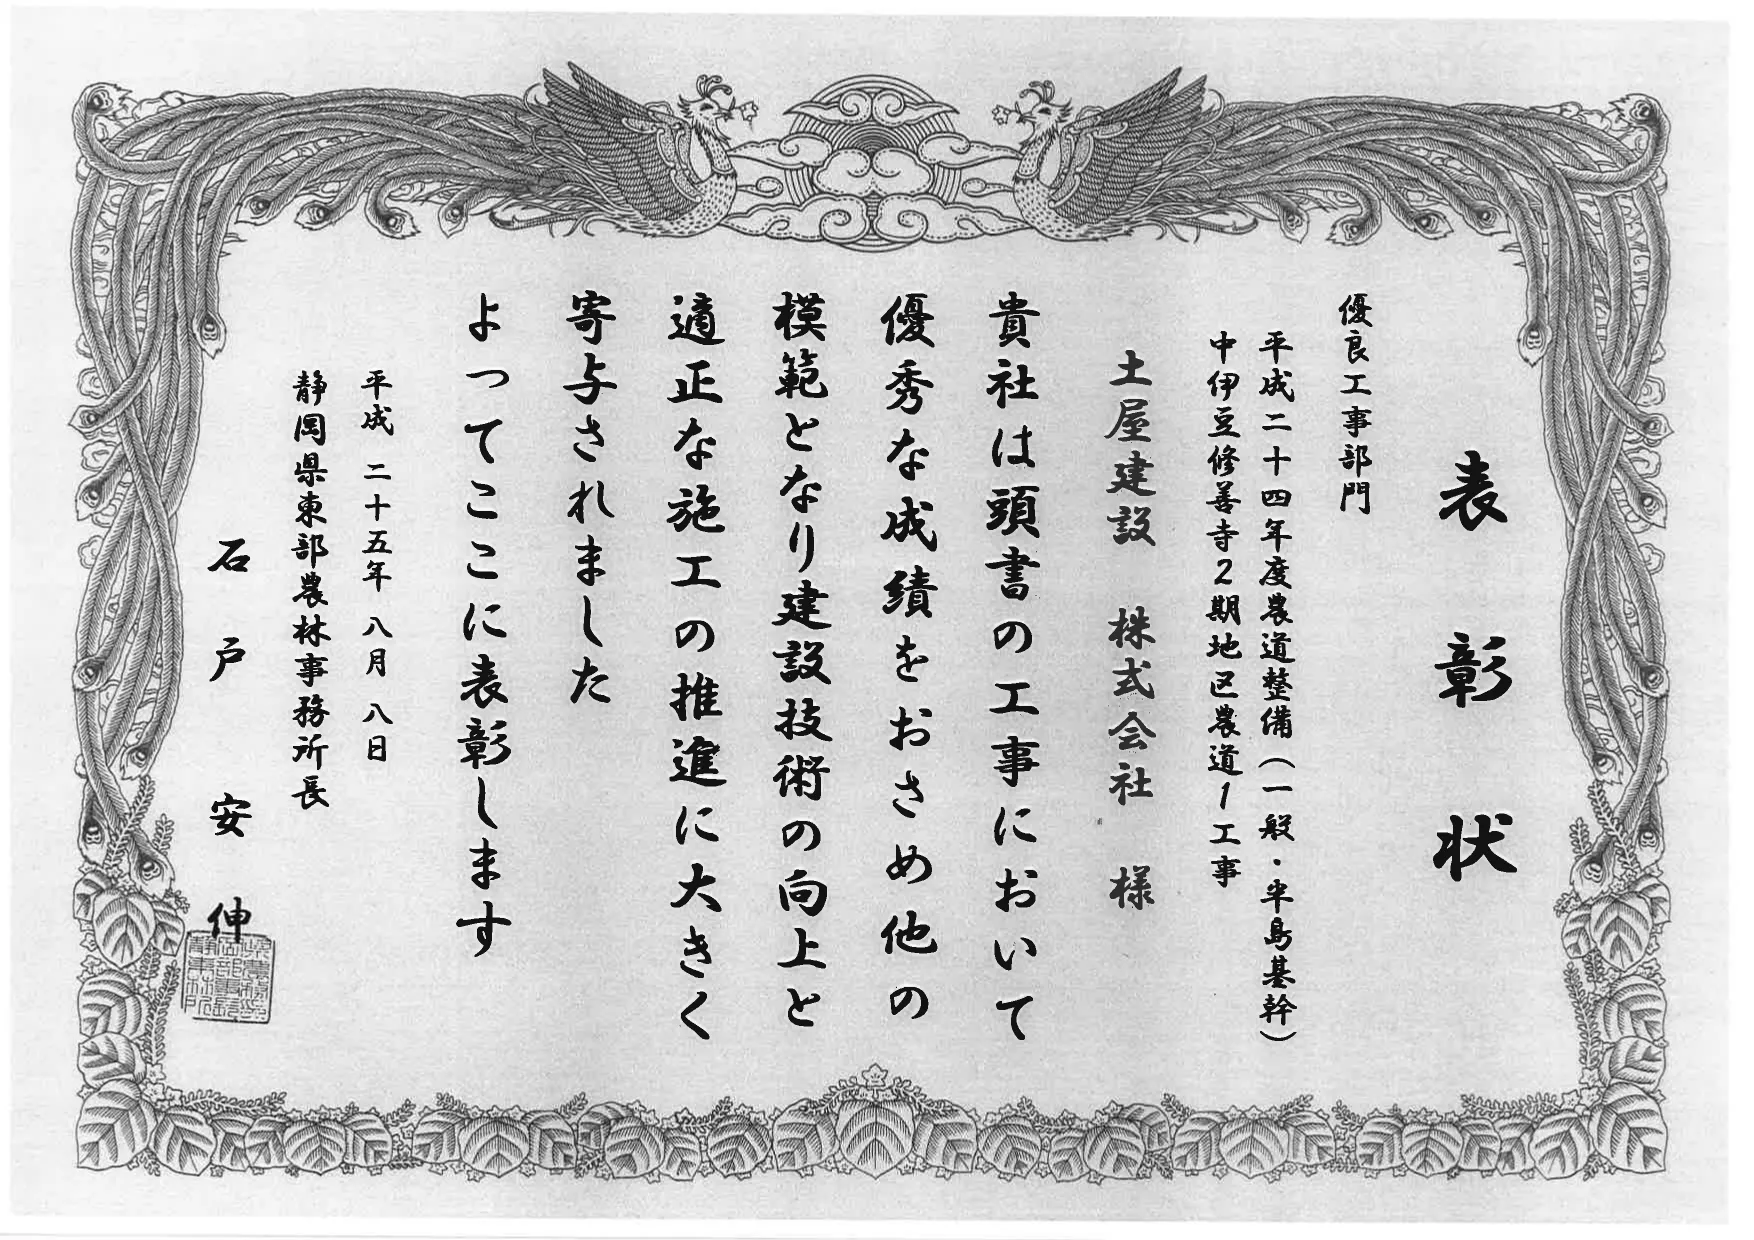 表彰状
優良工事部門
平成二十四年度農道整備(一般・半島基幹)
中伊豆修善寺2期地区農道1工事
土屋建設 株式会社 様
貴社は頭書の工事において
優秀な成績をおさめ他の
模範となり建設技術の向上と
適正な施工の推進に大きく
寄与されました
よってここに表彰します
平成 二十五年 八月 八日
静岡県東部農林事務所長
石戸安伸